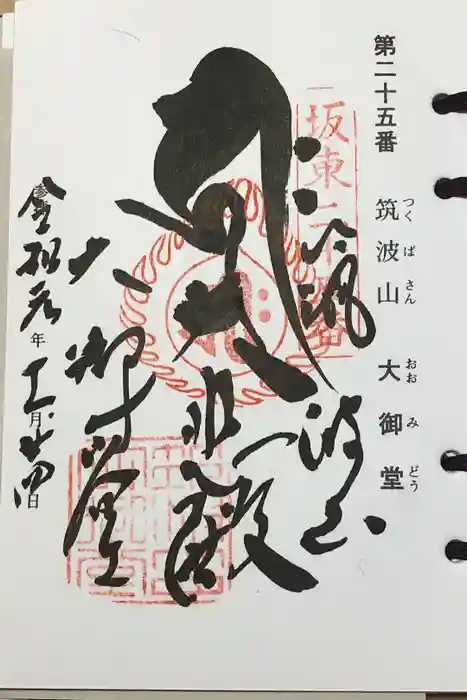 第二十五番 筑波山 大御堂
つくばさん おおみどう
坂東二十五番
筑波山
大悲殿
大御堂
令和元年十一月廿四日